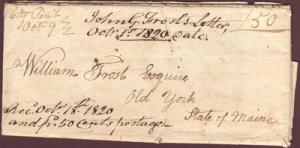 John G. Frost's Letter,
Octr. 1st. 1820 Date.
150
William Frost Esquire
Old York
State of Maine
Rec'd Octr. 18th. 1820
and pd. 50 Cents postage.